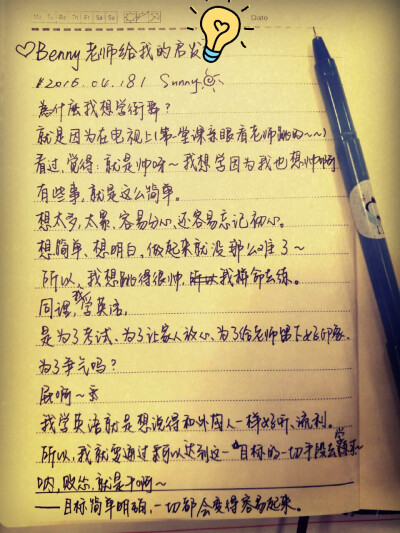 Mo Tu We Th Fr Sa Su
Date
♡Benny老师给我的启发
#2016.04.18| Sunny
為什麼我想学街舞?
就是因为在电视上(第一堂课亲眼看老师跳的~~)
看过,觉得:就是帅呀~我想学因为我也想帅啊
有些事,就是这么简单。
想太多,太累,容易分心,还容易忘记初心。
想简单、想明白,做起来就没那么难了~
所以,我想跳得很帅,所以我拼命去练。
同理,我学英语,
是为了考试、为了让家人放心、为了给老师留下好印象、
为了争气吗?
屁啊~
我学英语就是想说得和外国人一样好听、流利。
所以,我就要通过可以达到这一目标的一切手段去学
呐,败尔,就是干啊~
——目标简单明确,一切都会变得容易起来。